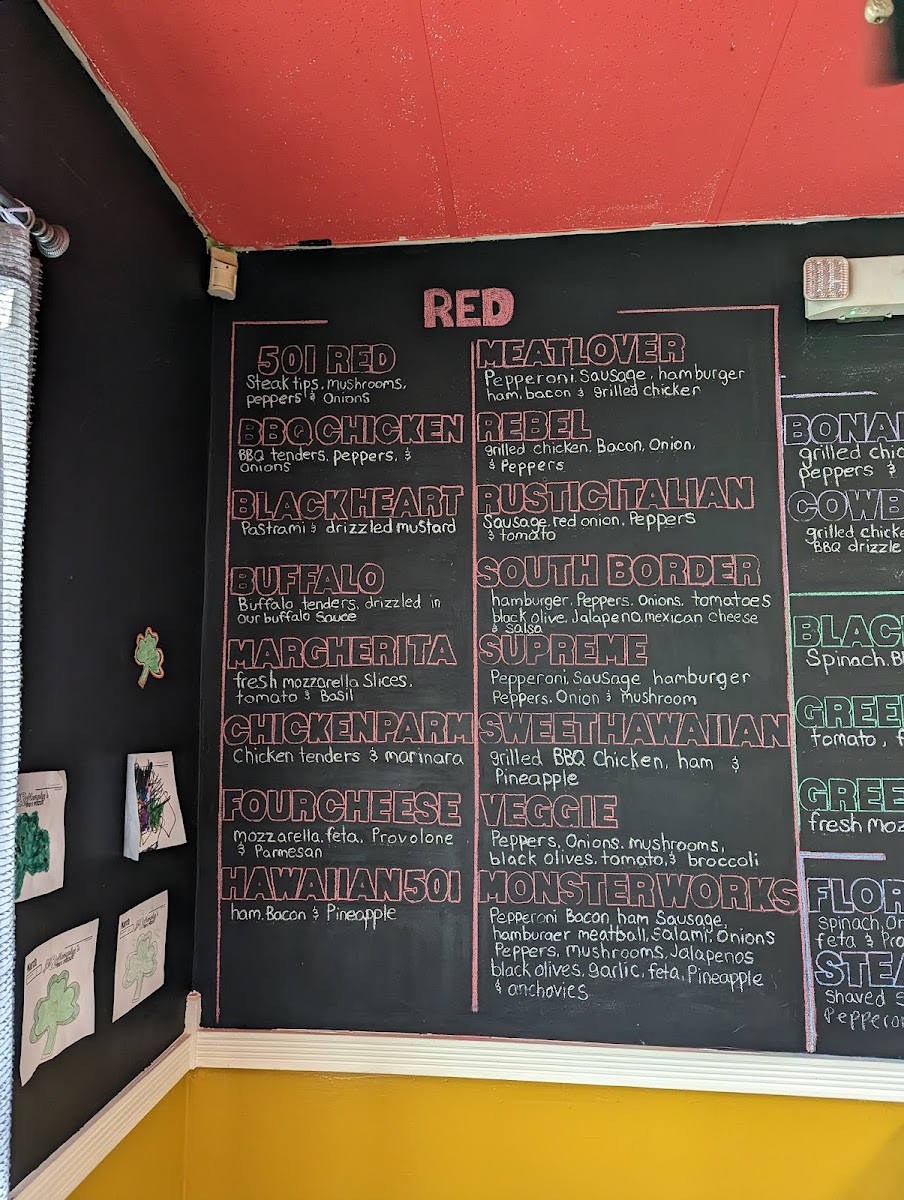 RED
501 RED
Steak tips, mushrooms,
peppers & Onions
BBQ CHICKEN
BBQ tenders, peppers, &
onions
BLACKHEART
Pastrami & drizzled mustard
BUFFALO
Buffalo tenders, drizzled in
our buffalo sauce
MARGHERITA
fresh mozzarella slices,
tomato & Basil
CHICKEN PARM
Chicken tenders & marinara
FOUR CHEESE
mozzarella, feta, Provolone
& Parmesan
HAWAIIAN 501
ham, Bacon & Pineapple
MEATLOVER
Pepperoni, Sausage, hamburger
ham, bacon & grilled chicken
REBEL
grilled chicken, Bacon, Onion,
& Peppers
RUSTIC ITALIAN
Sausage, red onion, Peppers
& tomato
SOUTH BORDER
hamburger, Peppers, Onions, tomatoes
black olive, Jalapeno, mexican cheese
& Salsa
SUPREME
Pepperoni, Sausage hamburger
Peppers, Onion & mushroom
SWEET HAWAIIAN
grilled BBQ Chicken, ham &
Pineapple
VEGGIE
Peppers, Onions, mushrooms,
black olives, tomato, & broccoli
MONSTER WORKS
Pepperoni Bacon, ham Sausage,
hamburger meatball, Salami, Onions
Peppers, mushrooms, Jalapenos
black olives, garlic, feta, Pineapple
& anchovies
BONA
grilled chic
peppers &
COWB
grilled, chicke
BBQ drizzle
BLAC
Spinach, B
GREE
tomato, f
GREE
fresh Moz
FLOR
Spinach, On
feta & Pro
STEA
Shaved S
Pepperon